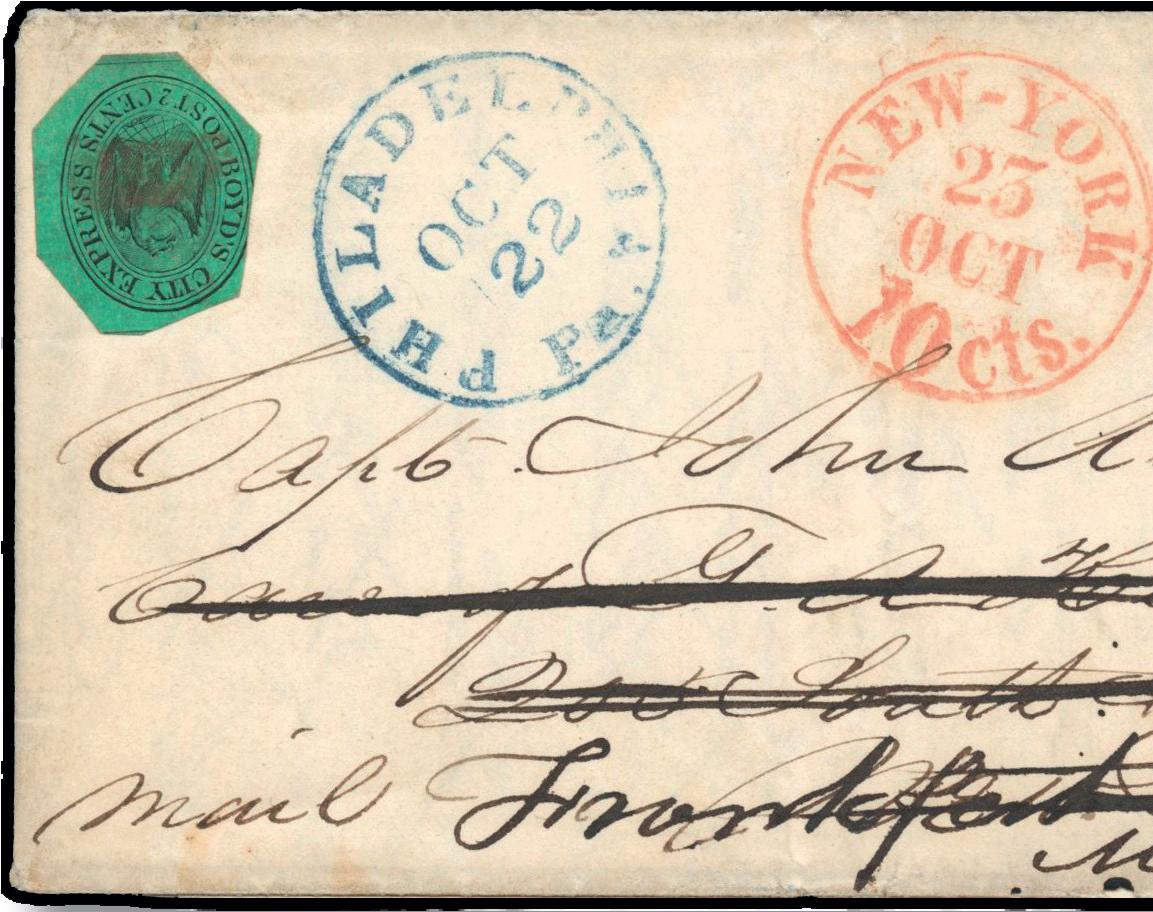 BOYD'S CITY EXPRESS POST 2 CENTS
PHILADELPHIA Pa.
OCT
22
NEW-YORK
23
OCT
10cts.
Capt. John A
Care of G. A
205 South
mail Frankfort
M